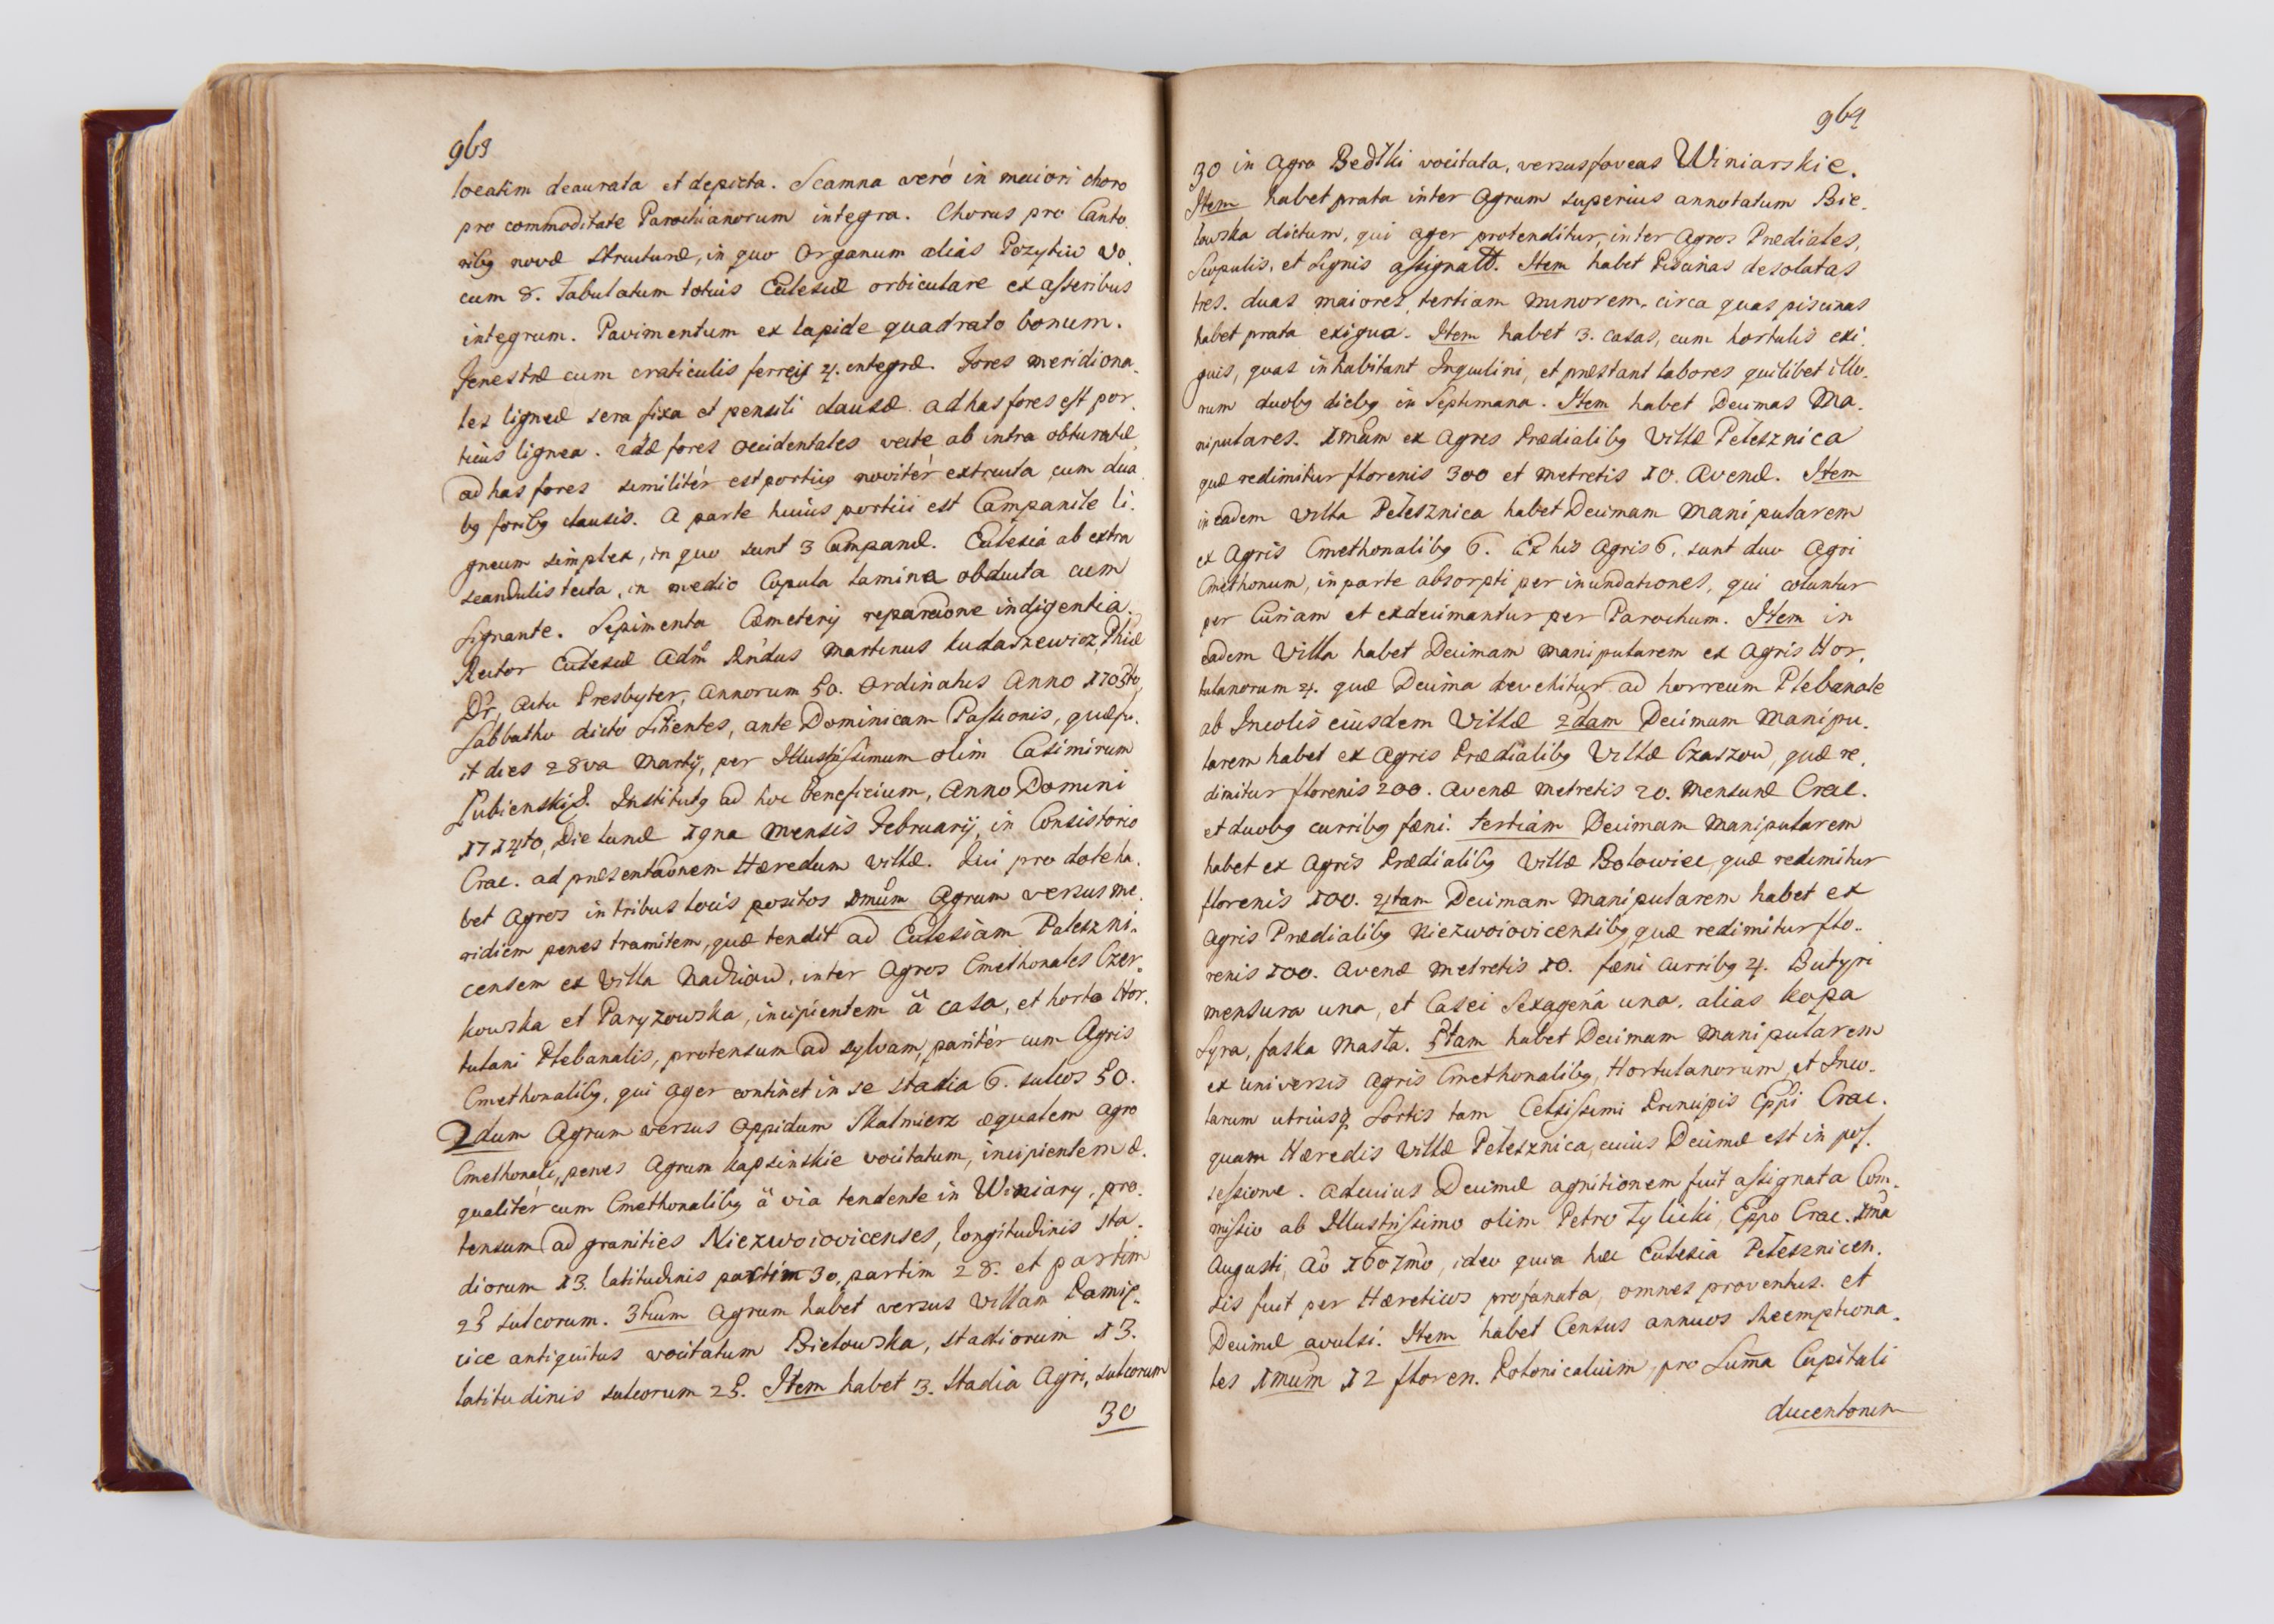 963
locatim deaurata et depicta. Scamna veró in maiori choro
pro commoditate Parochianorum integra. Chorus pro Canto.
ribq novæ structuræ, in quo Organum alias Pozytiw vo.
cum 8. Tabulatum totius Eclesiæ orbiculare ex asseribus
integrum. Pavimentum ex lapide quadrato bonum.
Fenestræ cum craticulis ferreis 4. integræ. Fores meridiona.
les ligneæ sera fixa et pensili clausæ. ad has fores est por.
ticus lignea. 2dæ fores occidentales vecte ab intra obturatæ,
ad has fores similitér est porticq novitér extructa cum dua
bq foribq clausis. A parte huius portici est Campanile li.
gneum simplex, in quo sunt 3 Campanæ. Eclesia ab extra
scandulis tecta, in medio Cupula lamina obducta cum
signante. Sepimenta Cæmeterij reparaõne indigentia.
Rector Eclesiæ Adm Rndus Martinus Ludaszewicz, Phiæ
Dr, actu Presbyter, annorum 50. Ordinatus Anno 1703tio,
Sabbatho dicto Sitientes, ante Dominicam Passionis, quæ fu.
it dies 28va Martij, per Illustrissimum olim Casimirum
Łubienski. Institutq ad hoc beneficium, Anno Domini
1714to, Die Lunæ 19na Mensis February, in Consistorio
Crac. ad præsentaõnem Hæredum villæ. Qui pro dote ha.
bet Agros in tribus locis positos 1mum Agrum versus me.
ridiem penes tramitem, quæ tendit ad Eclesiam Paleszni.
censem ex Villa Nadziow, inter Agros Cmethonales Czer.
kowska et Paryzowska, incipientem ä casa, et horto Hor.
tulani Plebanalis, protensum ad sylvam, paritér cum Agris
Cmethonalibq, qui ager continet in se stadia 6. sulcos 50.
2dum Agrum versus Oppidum Skalmierz æqualem agro
Cmethonali, penes Agrum Kapsinskie vocitatum, incipientem æ.
qualitér cum Cmethonalibq ä via tendente in Winiary, pro.
tensum ad granities Niezwoiovicenses, longitudinis sta.
diorum 13. latitudinis partim 30, partim 28. et partim
25 sulcorum. 3tium Agrum habet versus Villam Pamię.
cice antiquitus vocitatum Bielowska, stadiorum 13.
latitudinis sulcorum 25. Item habet 3. stadia Agri, sulcorum
30
964
30 in Agro Bedłki vocitata, versus foveas Winiarskie.
Item habet prata inter Agrum superius annotatum Bie.
lowska dictum, qui ager protenditur inter Agros Prædiales,
Scopulis, et signis assignatt. Item habet Piscinas desolatas
tres. duas maiores, tertiam minorem, circa quas piscinas
habet prata exigua. Item habet 3. casas, cum hortulis exi.
guis, quas inhabitant Inquilini, et præstant labores quilibet illo.
rum duobq diebq in Septimana. Item habet Decimas Ma.
nipulares. 1mam ex Agris Prædialibq Villæ Pelesznica
quæ redimitur florenis 300 et metretis 10. Avenæ. Item
in eadem Villa Pelesznica habet Decimam Manipularem
ex Agris Cmethonalibq 6. Ex his Agris 6. sunt duo Agri
Cmethonum, in parte absorpti per inundationes, qui coluntur
per Curiam et exdecimantur per Parochum. Item in
eadem Villa habet Decimam manipularem ex Agris Hor.
tulanorum 4. quæ Decima devehitur ad horreum Plebanale
ab Incolis eiusdem Villæ 2dam Decimam Manipu.
larem habet ex Agris Prædialibq Villæ Czaszow, quæ re.
dimitur florenis 200. Avenæ metretis 20. Mensuræ Crac.
et duobq curribq fæni. tertiam Decimam Manipularem
habet ex Agris Prædialibq Villæ Bolowiec, quæ redimitur
florenis 100. 4tam Decimam Manipularem habet ex
Agris Prædialibq Niezwoiovicensibq, quæ redimitur flo.
renis 100. Avenæ metretis 10. fæni curribq 4. Butyri
mensura una, et Casei Sexagena una. alias kopa
Syra, faska masła. 5tam habet Decimam Manipularem
ex universis Agris Cmethonalibq, Hortulanorum, et Inco.
larum utriusq sortis tam Celsissimi Principis Eppi Crac.
quam Hæredis Villæ Pelesznica, cuius Decimæ est in pos.
sessione. ad cuius Decimæ agnitionem fuit assignata Com.
missio ab Illustrissimo olim Petro Tylicki, Eppo Crac. 1ma
Augusti, Aõ 1607mo, ideo quia hæc Eclesia Pelesznicen.
sis fuit per Hæreticos profanata, omnes proventus. et
Decimæ avulsi. Item habet Census annuos Reemptiona.
les 1mum 12 floren. Polonicalium, pro Suma Capitali
ducentorum